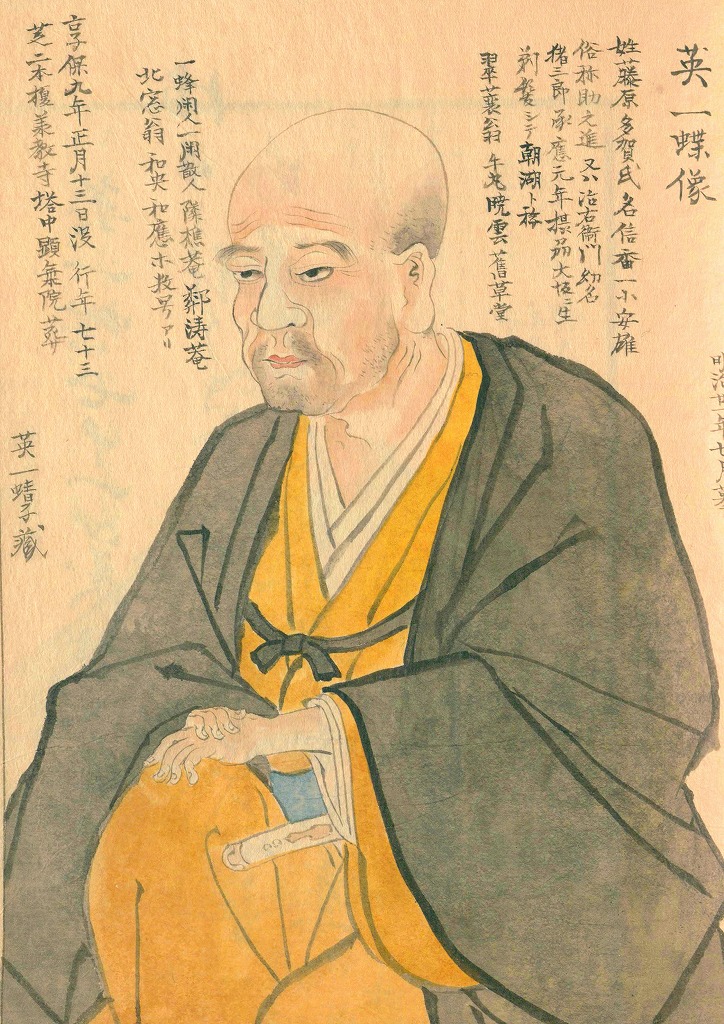 英一蝶像
姓藤原多賀氏名信香一ニ安雄
俗称助之進又ハ治右衛門幼名
猪三郎承應元年摂州大坂ニ生
剃髪シテ朝湖ト称
翠蓑翁 牛丸 暁雲 舊草堂
一蜂閑人 一閑散人 隣樵菴 鄰涛菴
北窓翁 和央 和應 ホ数号アリ
享保九年正月十三日没 行年七十三
芝二本榎 教寺塔中顕乗院葬
英一蜻 蔵
明治廿 年七月